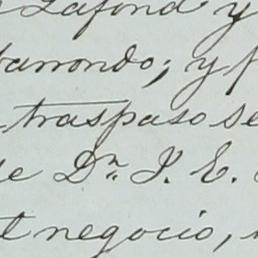 Lafond y
barrondo; y p
traspaso se
de Dn. J. E.
el negocio,